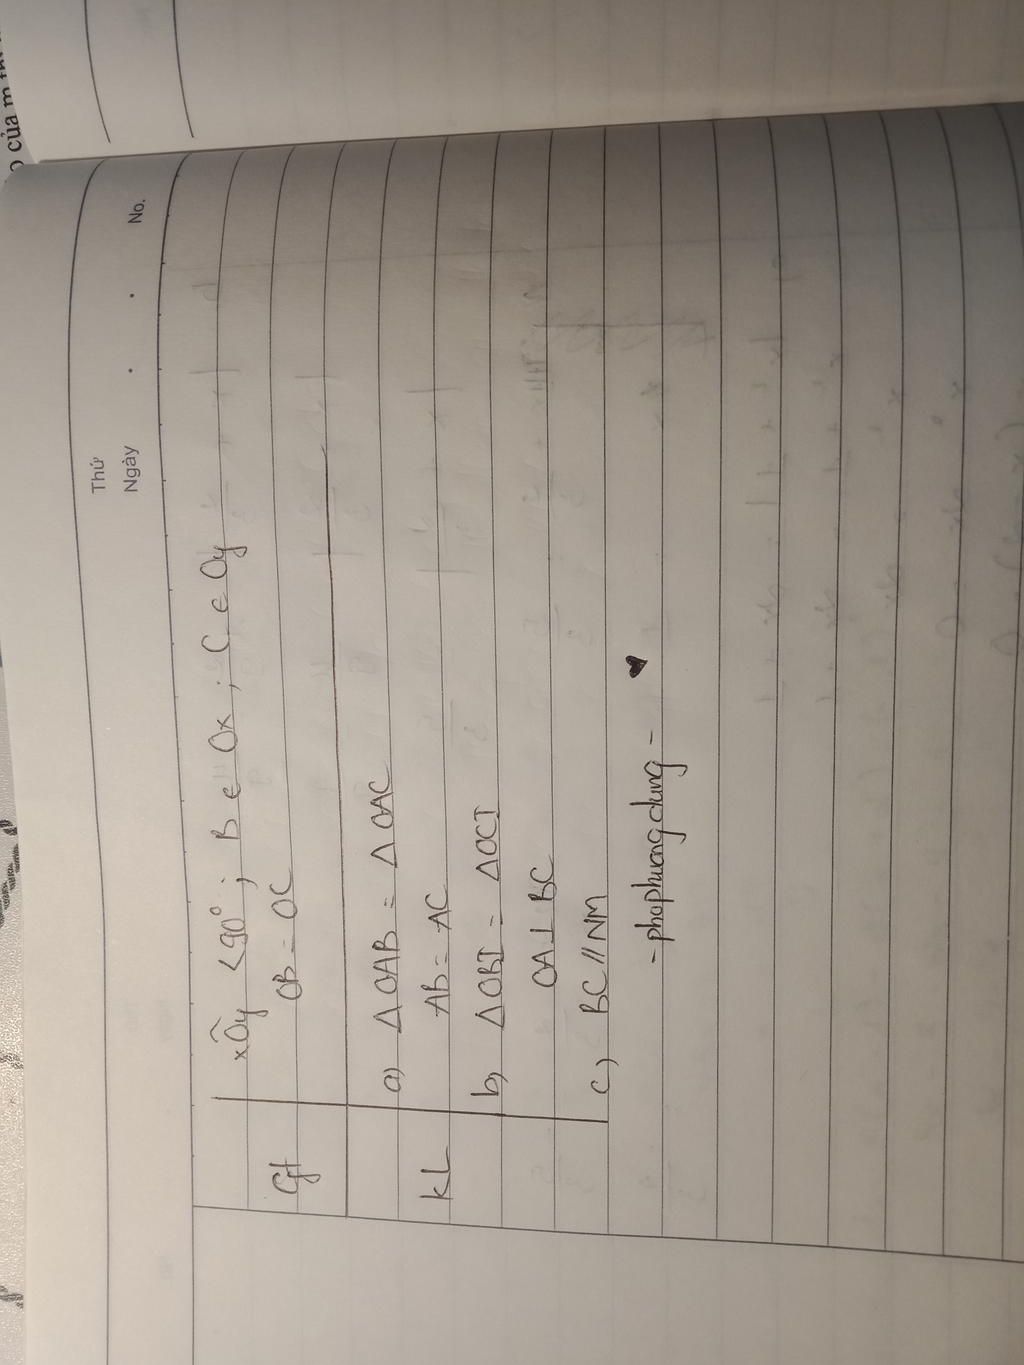 của m
Thứ
Ngày . . No.
xÔy < 90° ; B ∈ Ox ; C ∈ Oy
Gt OB = OC
a) Δ OAB = Δ OAC
kL AB = AC
b) Δ OBI = Δ OCI
OA ⊥ BC
c) BC // NM
- phophuongdung -